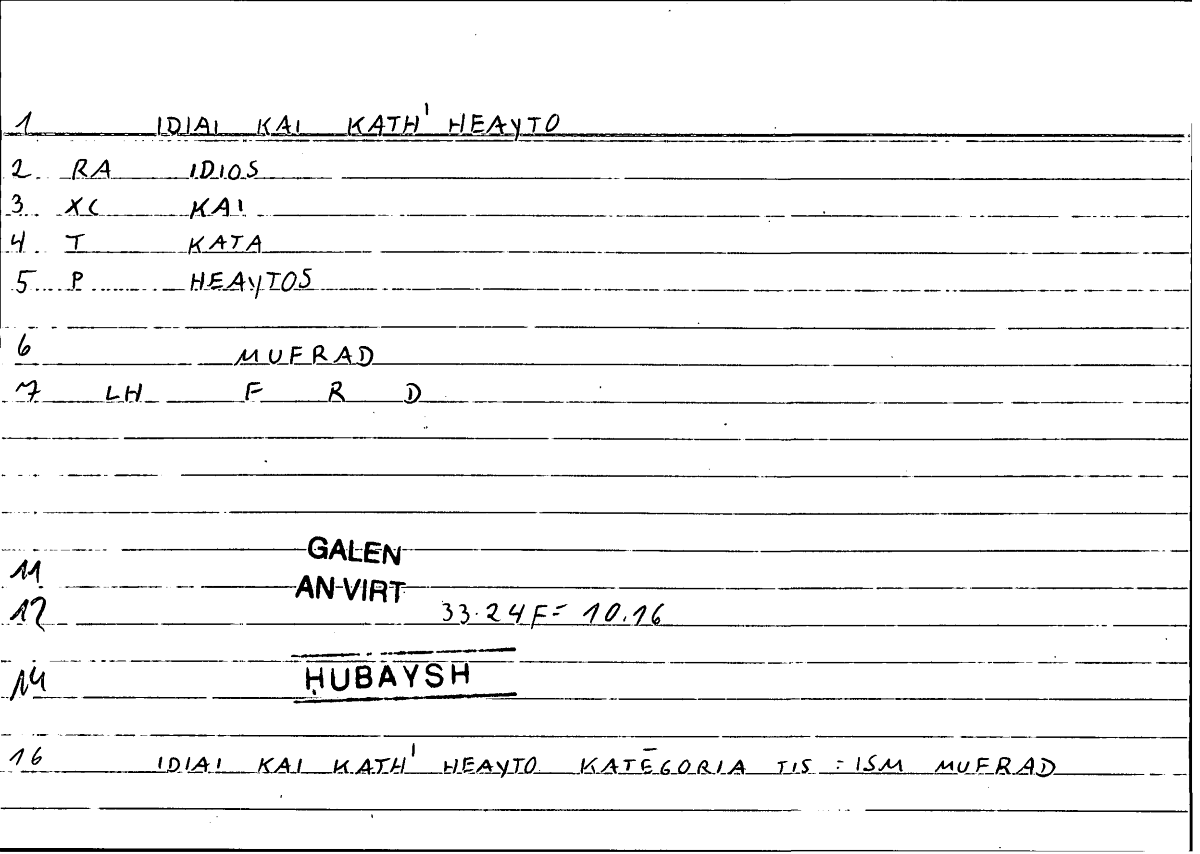 1 IDIAI KAI KATH' HEAYTO
2 RA IDIOS
3 XC KAI
4 T KATA
5 P HEAYTOS
6 MUFRAD
7 LH F R D
11 GALEN
AN VIRT
12 33.24F= 10.16
14 ḤUBAYSH
16 IDIAI KAI KATH' HEAYTO KATĒGORIA TIS = ISM MUFRAD